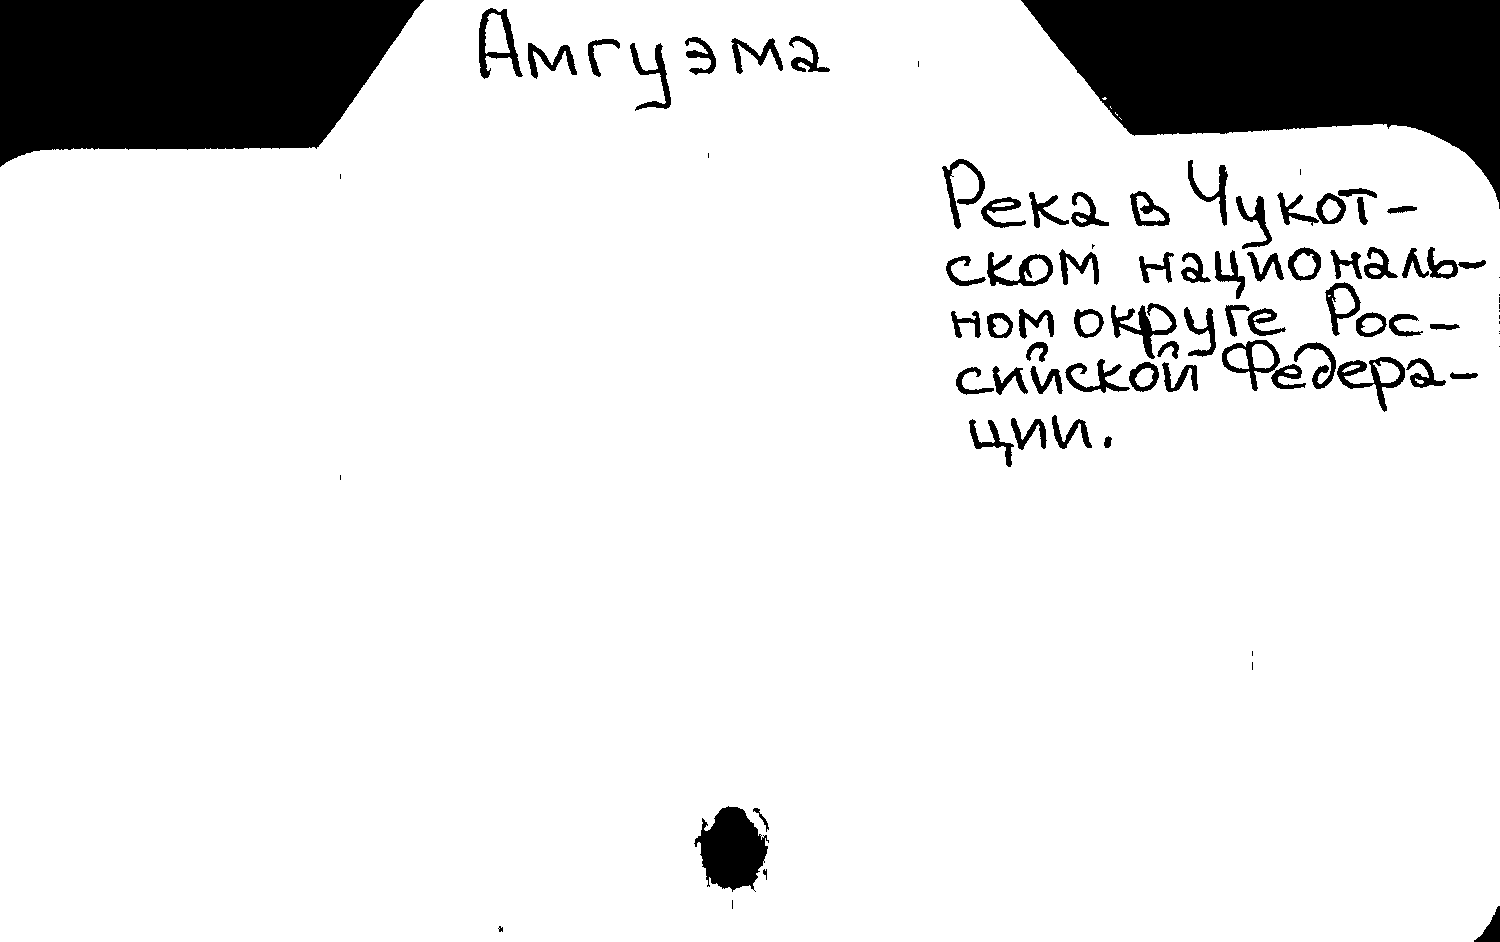 Амгуэма
Река в Чукот-
ском националь-
ном округе Рос-
сийской Федера-
ции.